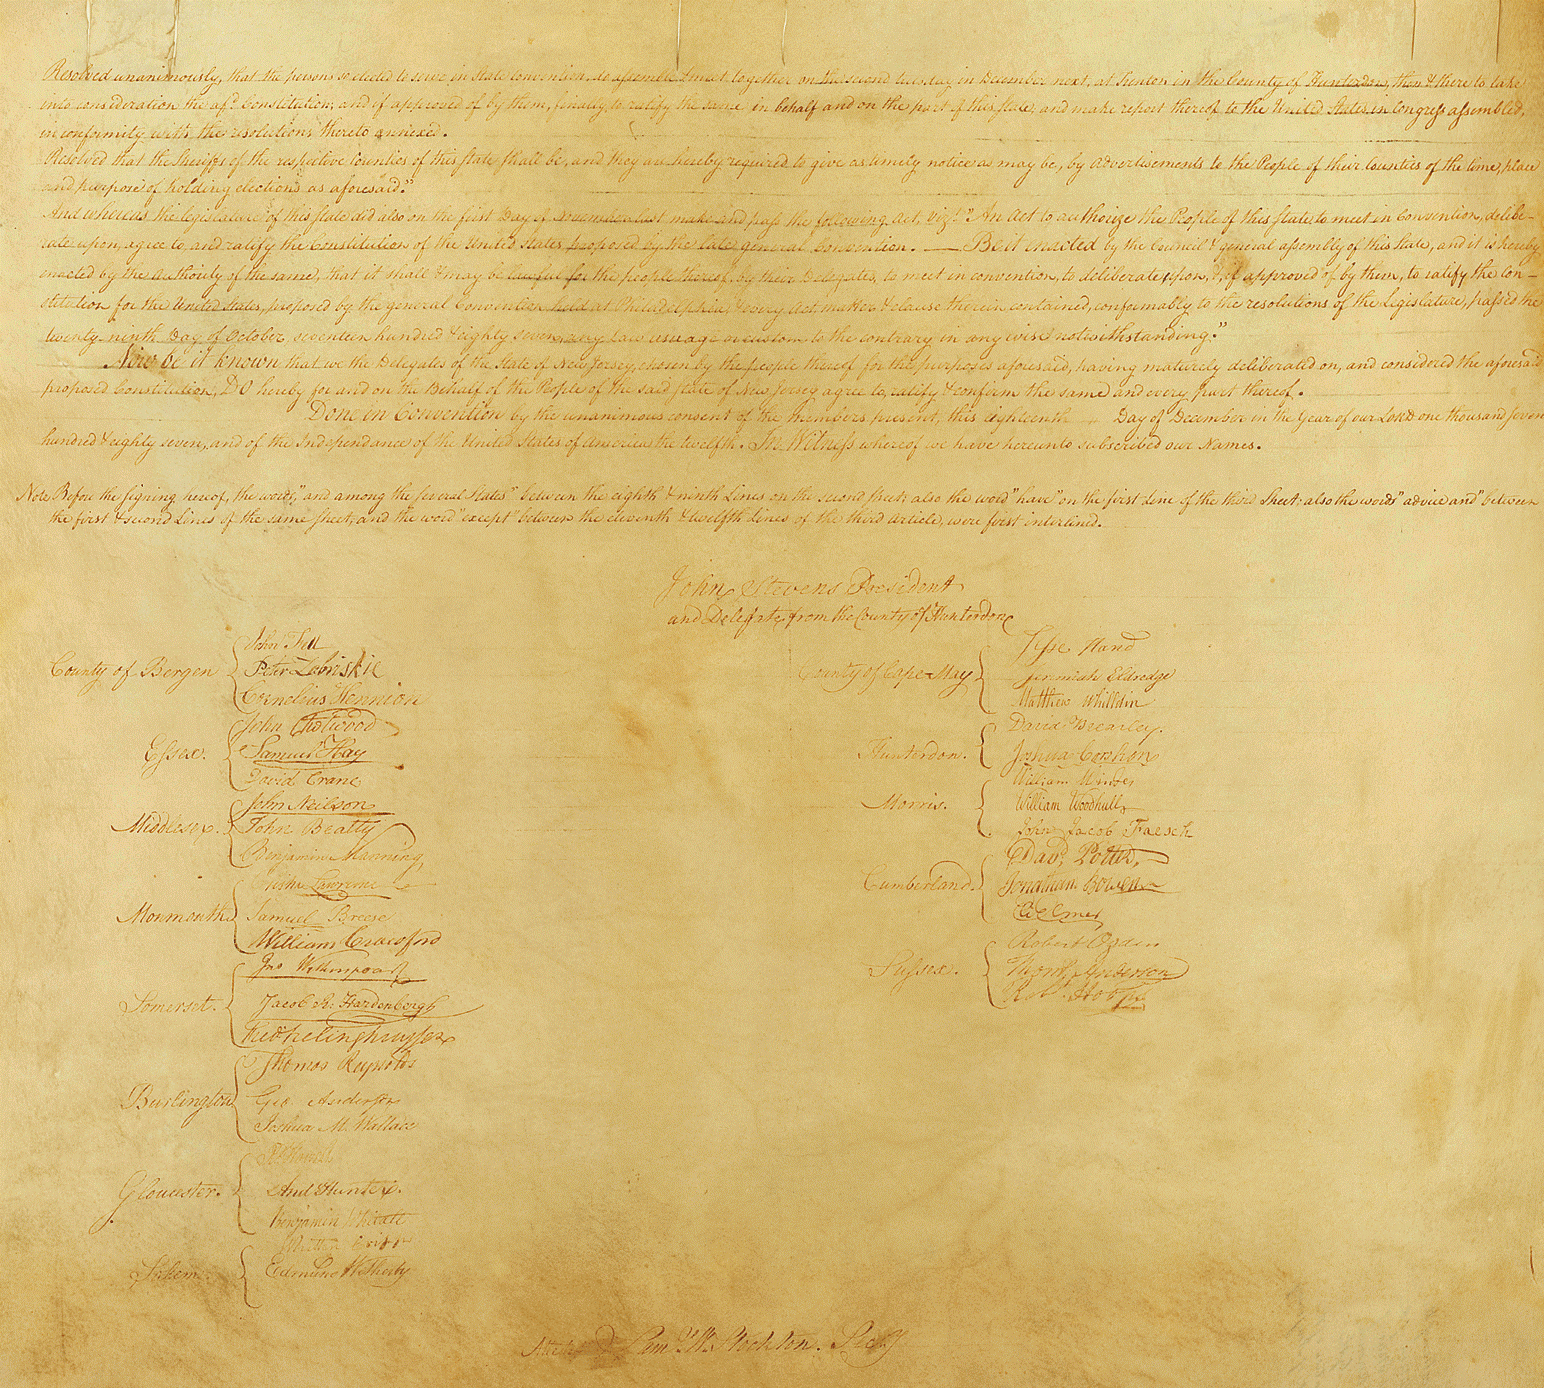 Resolved unanimously, that the persons so elected to serve in state convention, do assemble & meet together on the second tuesday in December next, at Trenton in the County of Hunterdon, then & there to take
into consideration the afsd. Constitution; and if approved of by them, finally to ratify the same in behalf and on the part of this state; and make report thereof to the United States in Congress assembled,
in conformity with the resolutions thereto annexed.
Resolved that the Sheriffs of the respective Counties of this state shall be, and they are hereby required to give as timely notice as may be, by advertisements to the People of their Counties of the time, place
and purpose of holding elections as aforesaid."
And whereas the legislature of this state did also on the first Day of November last make and pass the following Act, vizt. "An Act to authorize the People of this state to meet in Convention, delibe-
rate upon, agree to, and ratify the Constitution of the United States proposed by the late general convention. — Be it enacted by the Council & general assembly of this State, and it is hereby
enacted by the authority of the same, that it shall & may be lawful for the people thereof, by their Delegates, to meet in convention, to deliberate upon, &, if approved of by them, to ratify the Con-
stitution for the United States, proposed by the general Convention held at Philadelphia, & every act, matter & clause therein contained, conformably to the resolutions of the legislature, passed the
twenty ninth Day of October seventeen hundred & eighty seven, any law usuage or custom to the contrary in any wise notwithstanding."
Now be it known that we the Delegates of the State of New Jersey, chosen by the people thereof for the purposes aforesaid, having maturely deliberated on, and considered the aforesaid
proposed Constitution, DO hereby for and on the Behalf of the People of the said state of New Jersey agree to, ratify & confirm the same and every part thereof.
Done in Convention by the unanimous consent of the members present, this eighteenth Day of December in the Year of our LORD one thousand seven
hundred & eighty seven, and of the Independance of the United States of America the twelfth. In Witness whereof we have hereunto subscribed our Names.
Note, Before the signing hereof, the words, "and among the several States" between the eighth & ninth Lines on the second sheet; also the word "have" on the first line of the third Sheet; also the words "advice and" between
the first & second Lines of the same sheet; and the word "except" between the eleventh & twelfth Lines of the third article, were first interlined.
John Stevens President
and Delegate from the County of Hunterdon
County of Bergen
John Fell
Peter Zobriskie
Cornelius Hennion
Essex.
John Chetwood
Samuel Hay
David Crane
Middlesex.
John Neilson
John Beatty
Benjamin Manning
Monmouth
Elisha Lawrence
Samuel Breese
William Crawford
Somerset.
Jno Witherspoon
Jacob R. Hardenbergh
Fredk Frelinghuysen
Burlington
Thomas Reynolds
Geo Anderson
Joshua M. Wallace
Gloucester.
And Hunter.
Benjamin Whitall
Salem
Whitten Cripps
Edmund Wetherby
County of Cape-May
Jesse Hand
Jeremiah Eldredge
Matthew Whilldin
Hunterdon.
David Brearley.
Joshua Corshon
Morris.
William Windes
William Woodhull
John Jacob Faesch
Cumberland.
Davd. Potter,
Jonathan Bowen
Eli Elmer
Sussex.
Robert Ogden
Thoms. Anderson
Robt. Hoops
Attest Saml. W. Stockton. Secy